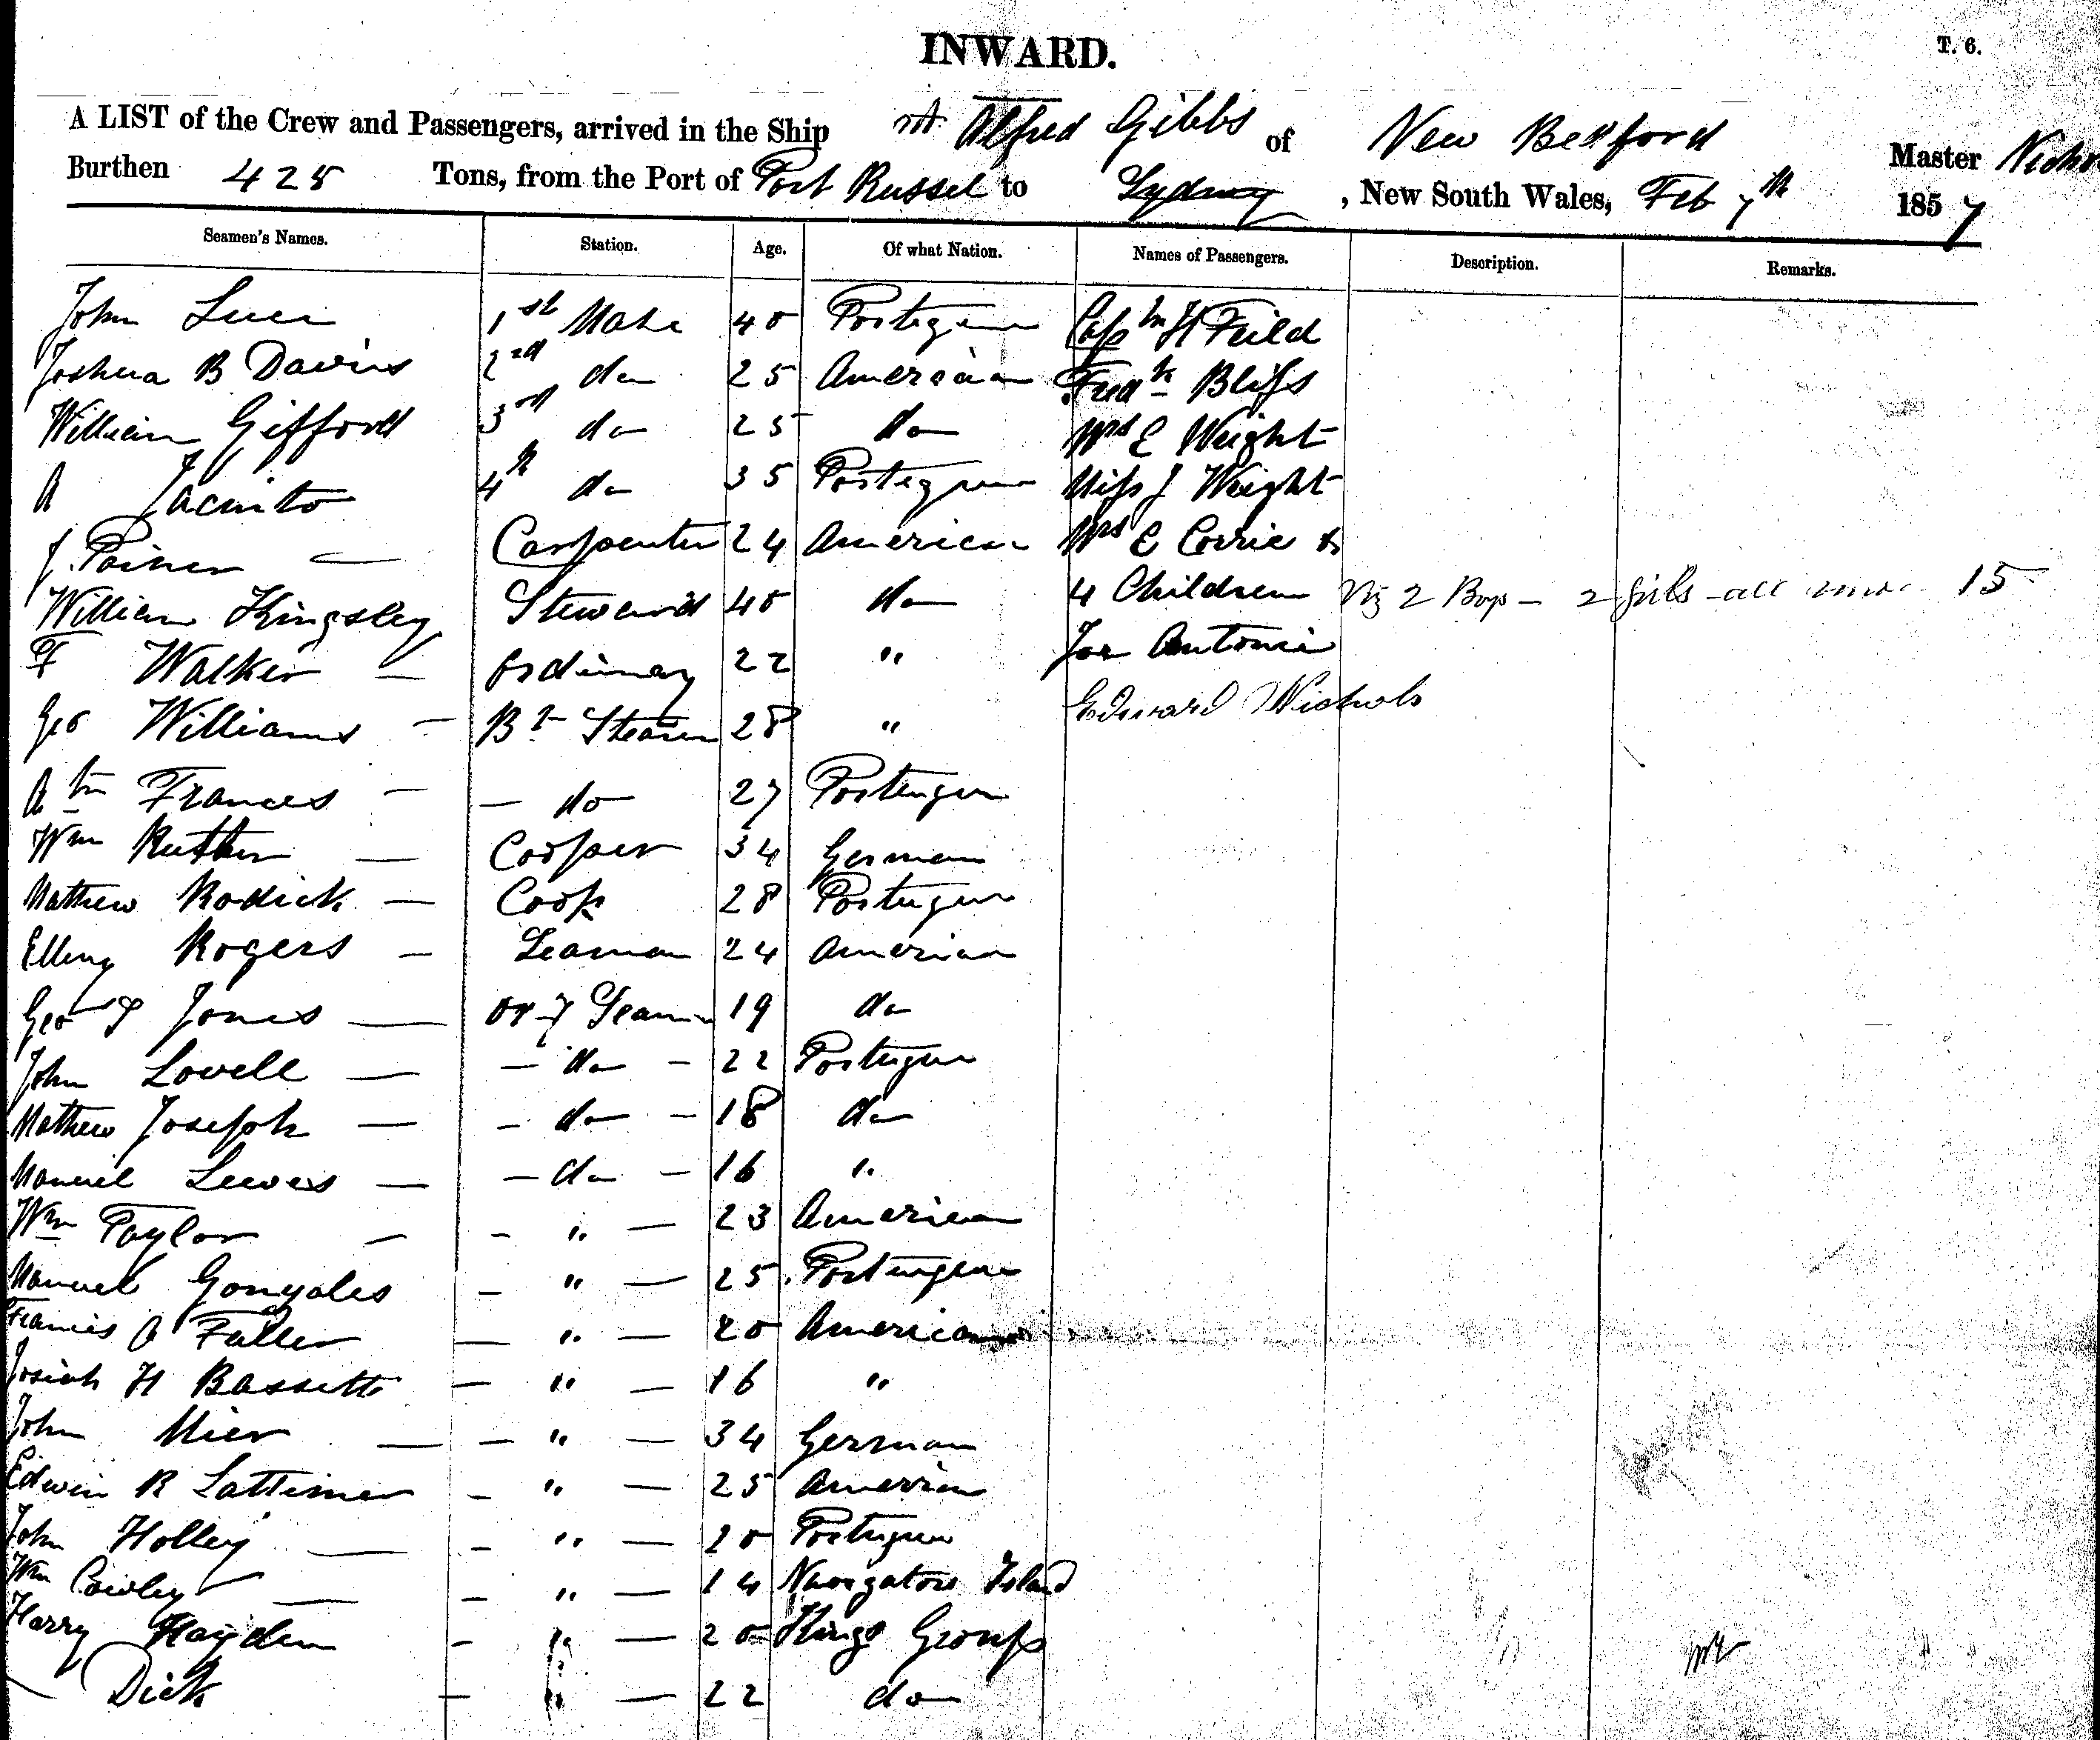 INWARD.
T. 6.
A LIST of the Crew and Passengers, arrived in the Ship Alfred Gibbs of New Bedford Master
Burthen 425 Tons, from the Port of Port Russel to Sydney, New South Wales, Feb 7th 1857
Seamen's Names. Station. Age. Of what Nation. Names of Passengers. Description. Remarks.
John 1st Mate 40 Portegue Captn H Feild
Joshua B Davis 2nd do 25 American Fredk Bliss
William Gifford 3rd do 25 do Mrs E Wright
A Jacinto 4th do 35 Portegue Miss J Wright
J. Carpenter 24 American Mrs E Corrie &
William Kingsley Steward 40 do 4 Children Viz 2 Boys - 2 girls - all 15
F Walker — Ordinary 22 " Joe Antonie
Geo Williams — Bt Stearer 28 " Edward Nichols
Atn Frances — — do 27 Portugue
Wm Ruther — Cooper 34 German
Mathew Rodick — Cook 28 Portugue
Elleny Rogers — Seaman 24 American
Geo T Jones — or-y Seaman 19 do
John Lovell — — do — 22 Portugue
Mathew Joseph — — do — 18 do
Manuel Lewes — — do — 16 "
Wm Taylor — — " — 23 American
Manuel Gonzales — " — 25 Portugue
Francis A Fuller — " — 20 American
Josiah H Bassett — " — 16 "
John Mier — — " — 34 German
Edwin R Lattimer — " — 25 American
John Holley — — " — 20 Portugue
Wm Cowley — — " — 14 Navigators Island
Harry Hayden — " — 20 Kings Group
Dick — " — 22 do